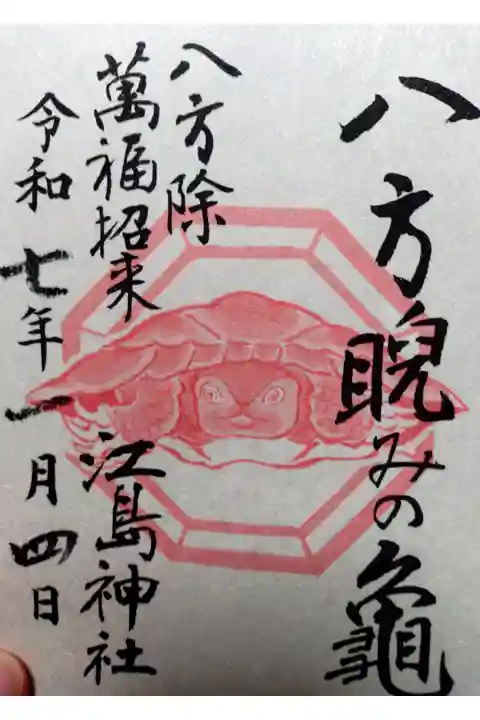 八方睨みの龜
八方除
萬福招来 江島神社
令和七年一月四日